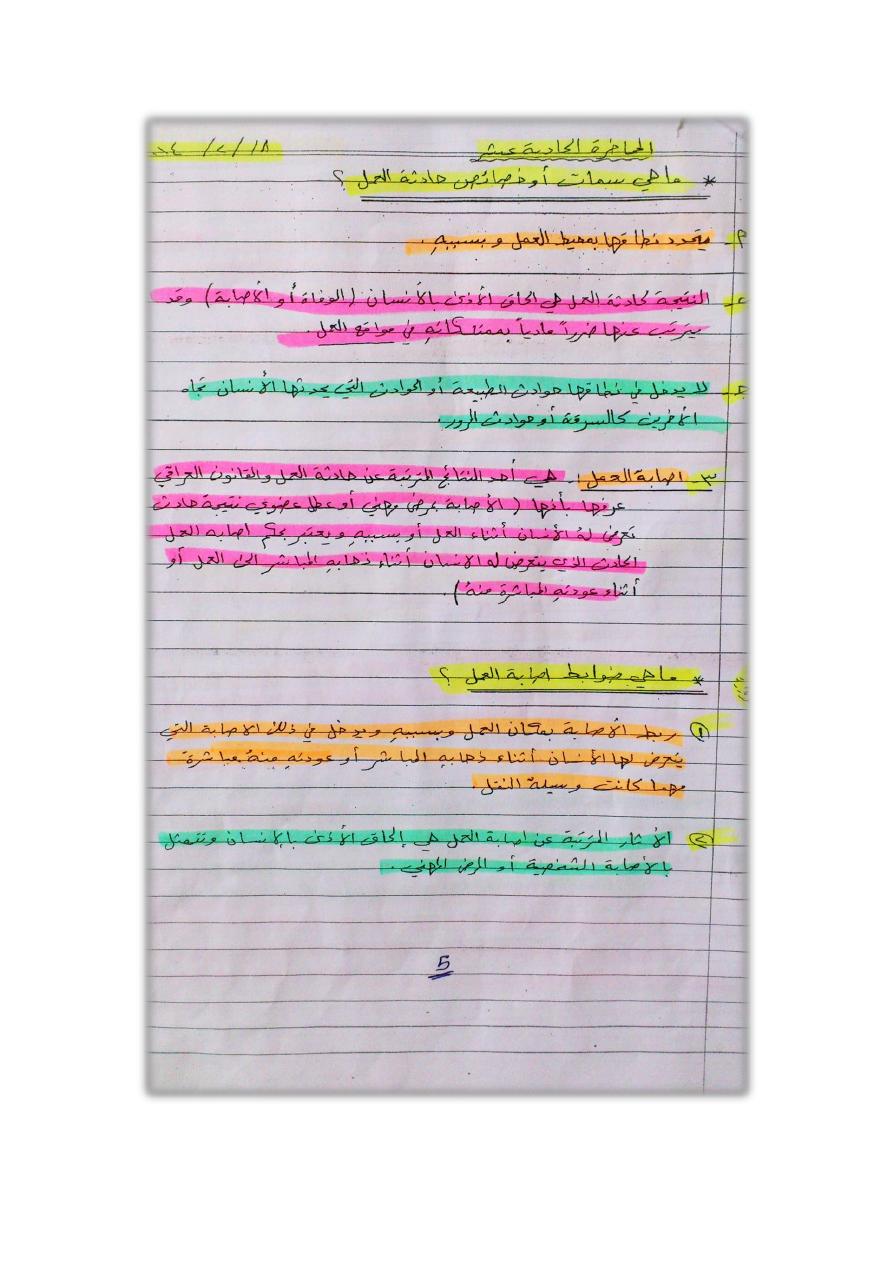 المحاضرة الحادية عشر
* ما هي سمات أو خصائص حادثة العمل ؟
يتحدد نطاقها بمحيط العمل و بسببهِ .
النتيجة لحادثة العمل هي الحاق الأذى بالأنسان (الوفاة أو الأصابة) وقد
يترتب عنها ضرراً مادياً بممتلكاتهِ في مواقع العمل .
لا يدخل في نطاقها حوادث الطبيعة أو الحوادث التي يحدثها الأنسان تجاه
الأخرين كالسرقة أو حوادث المرور.
٣- اصابة العمل :- هي أحد النتائج المترتبة عن حادثة العمل والقانون العراقي
عرفها بأنها ( الأصابة بمرض مهني أو عطل عضوي نتيجة حادث
تعرض لهُ الأنسان أثناء العمل أو بسببهِ و يعتبر بحكم اصابة العمل
الحادث الذي يتعرض له الانسان أثناء ذهابهِ المباشر الى العمل أو
أثناء عودتهِ المباشرة منهُ) .
* ما هي ضوابط اصابة العمل ؟
① ربط الأصابة بمكان العمل وبسببهِ ويدخل في ذلك الاصابة التي
يتعرض لها الأنسان أثناء ذهابهِ المباشر أو عودتهِ منهُ مباشرةً
مهما كانت وسيلة النقل .
② الأثار المترتبة عن اصابة العمل هي إلحاق الأذى بالانسان وتتمثل
بالأصابة الشخصية أو المرض المهني .
5